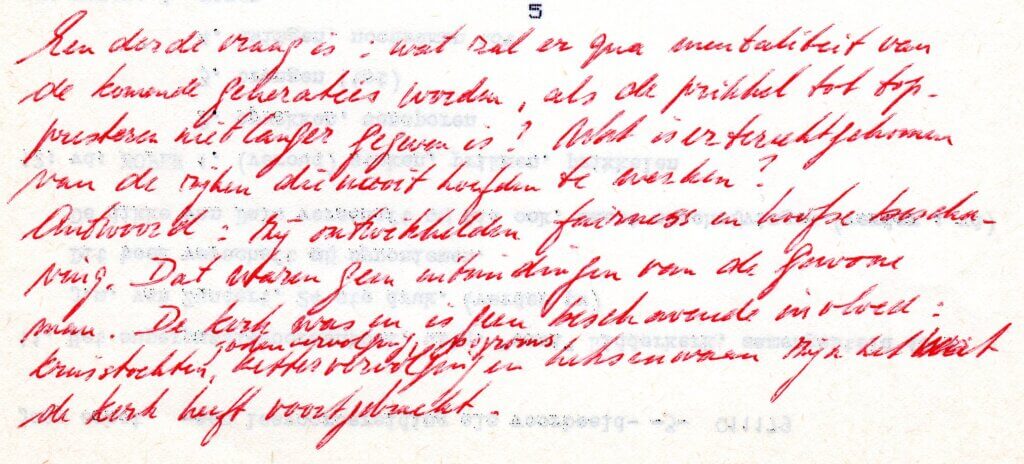 5
Een derde vraag is: wat zal er qua mentaliteit van
de komende generaties worden, als de prikkel tot top-
presteren niet langer gegeven is? Wat is er terechtgekomen
van de rijken die nooit hoefden te werken?
Antwoord: zij ontwikkelden fairness en hoofse bescha-
ving. Dat waren geen uitvindingen van de gewone
man. De kerk was en is geen beschavende invloed:
jodenvervolging, pogroms,
kruistochten, kettervervolging en heksenwaan zijn het wat
de kerk heeft voortgebracht.